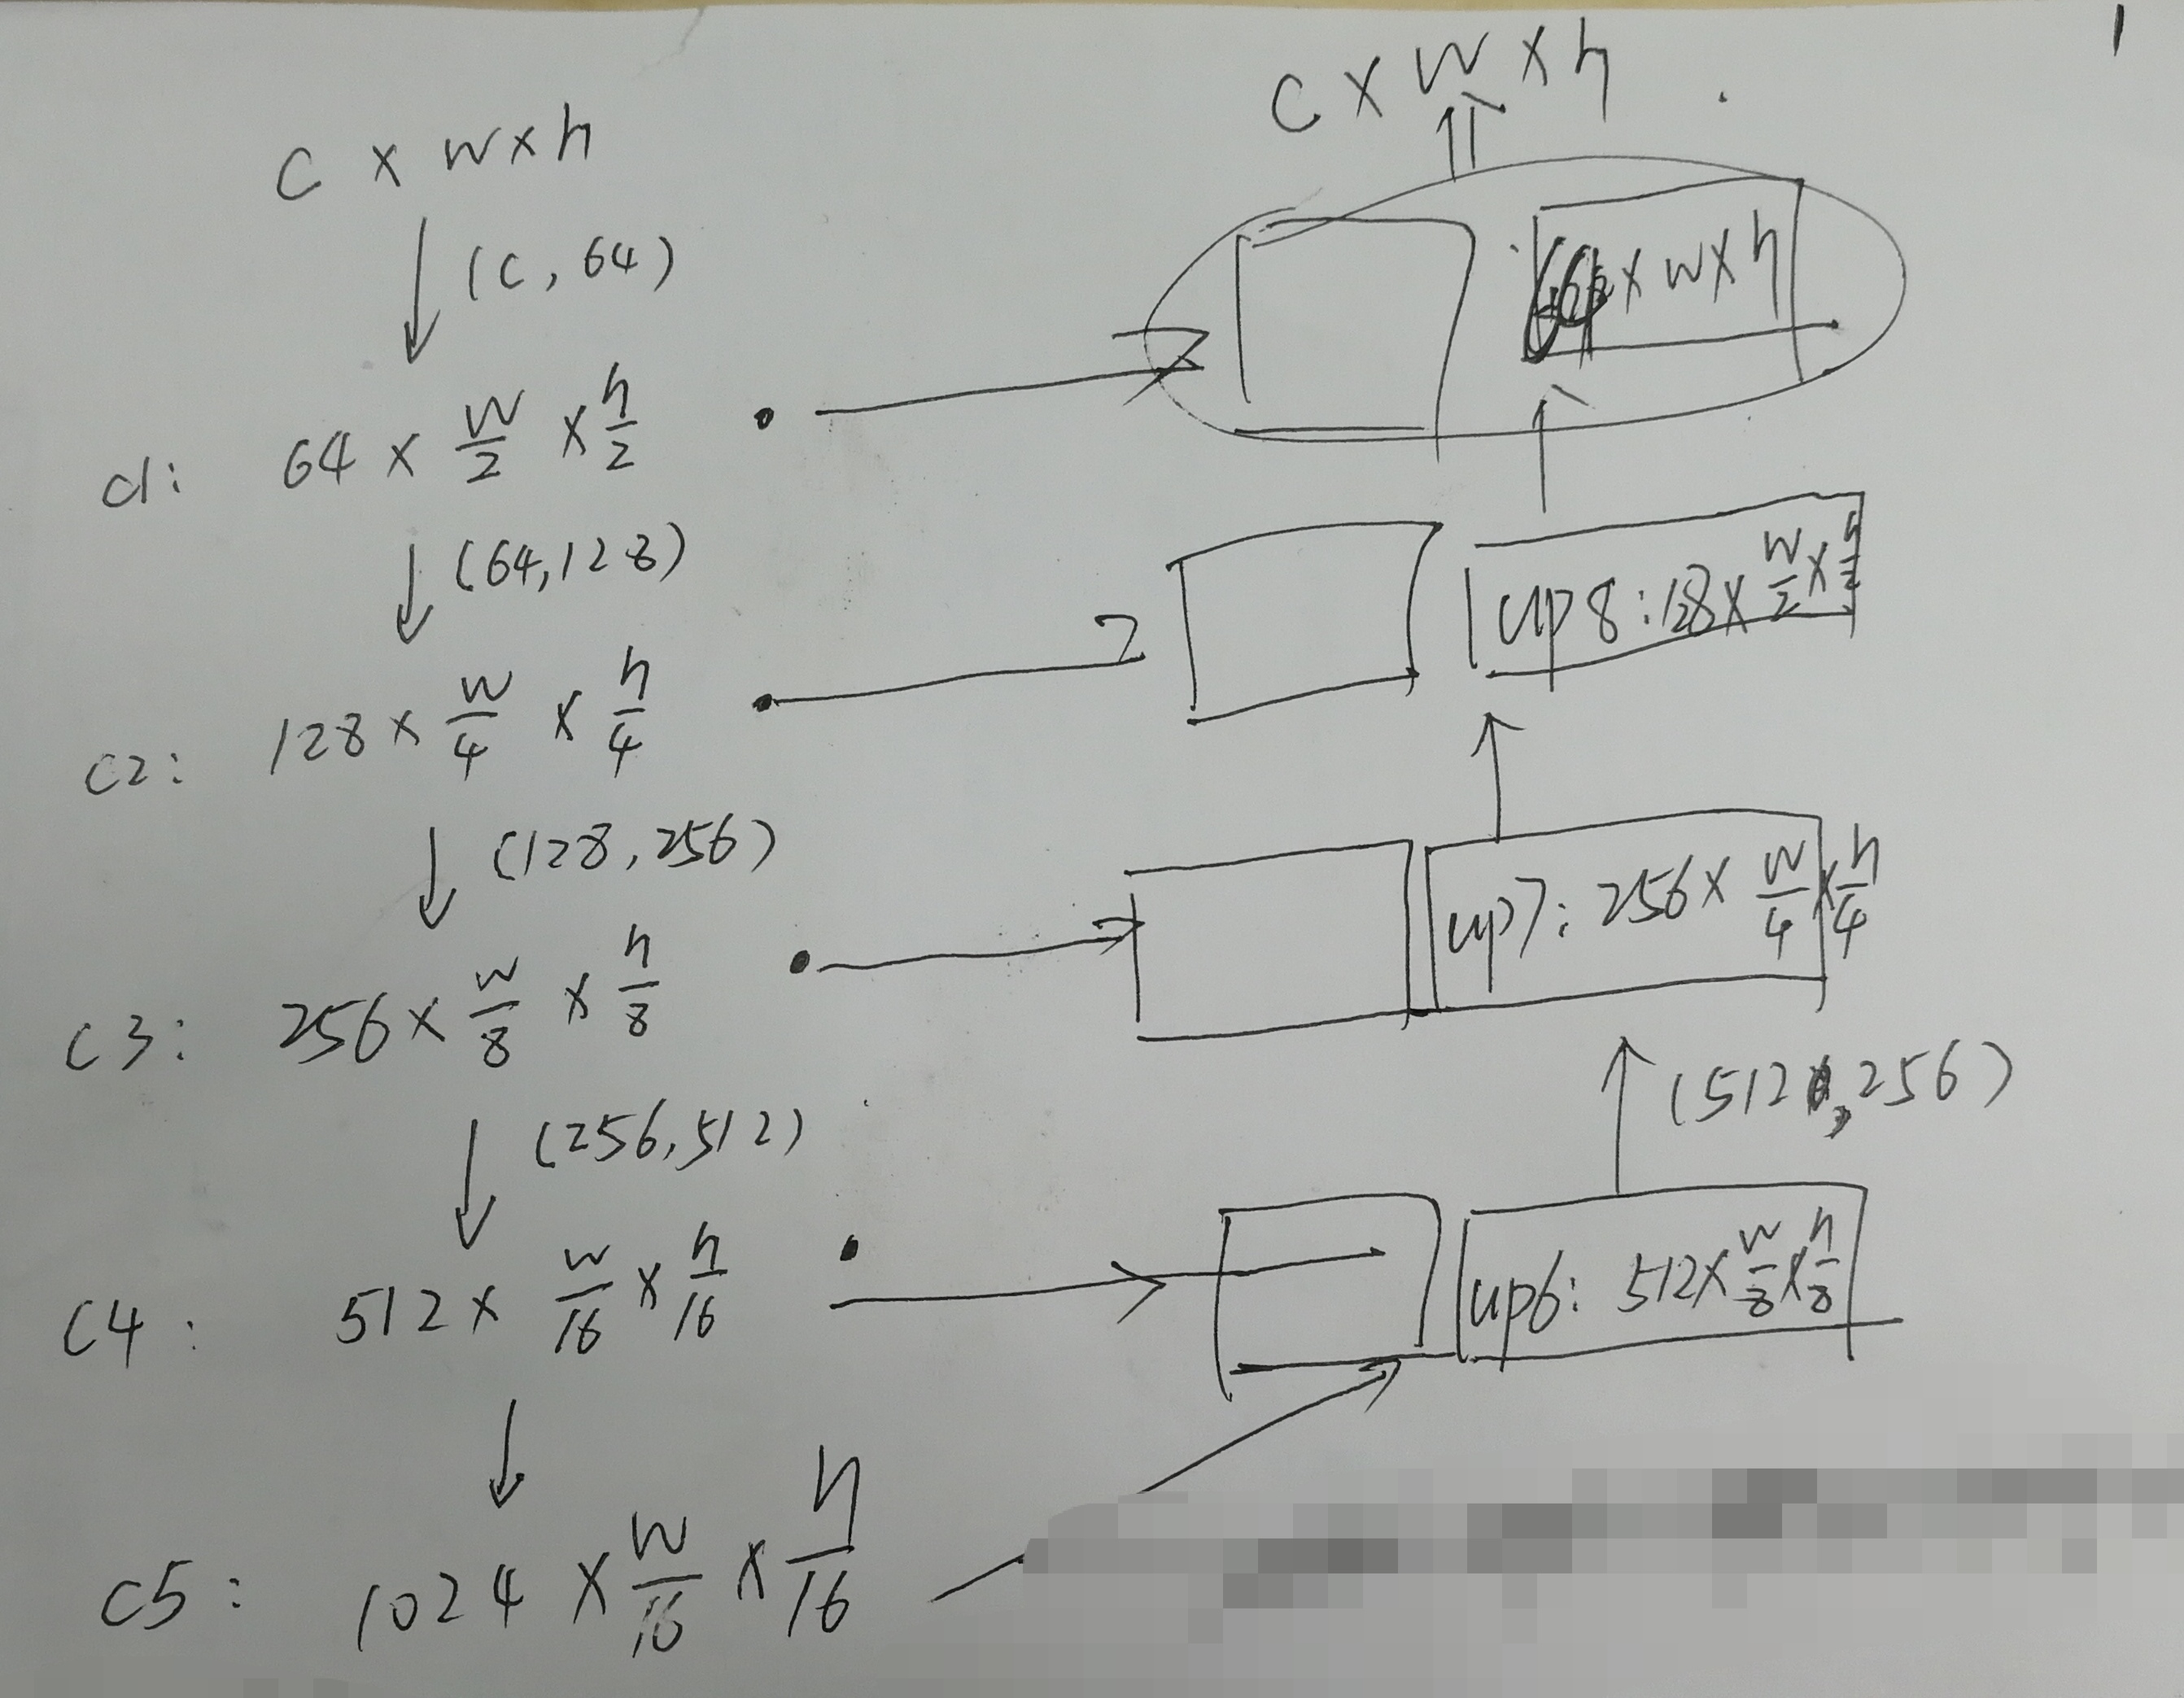 C × w × h
(C, 64)
c1: 64 × w/2 × h/2
(64, 128)
c2: 128 × w/4 × h/4
(128, 256)
c3: 256 × w/8 × h/8
(256, 512)
c4: 512 × w/16 × h/16
c5: 1024 × w/16 × h/16
C × w × h
64 × w × h
up8: 128 × w/2 × h/2
up7: 256 × w/4 × h/4
(512, 256)
up6: 512 × w/8 × h/8